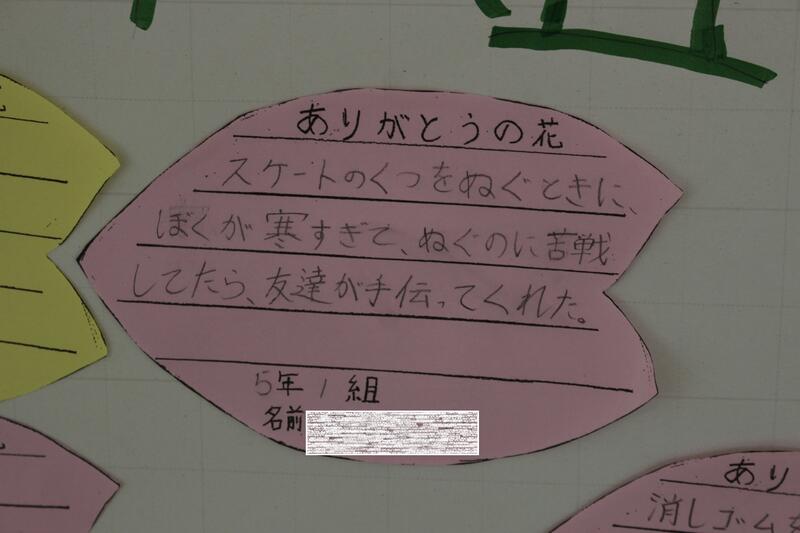 ありがとうの花
スケートのくつをぬぐときに、
ぼくが寒すぎて、ぬぐのに苦戦
してたら、友達が手伝ってくれた。
5年1組
名前
あり
消しゴムを